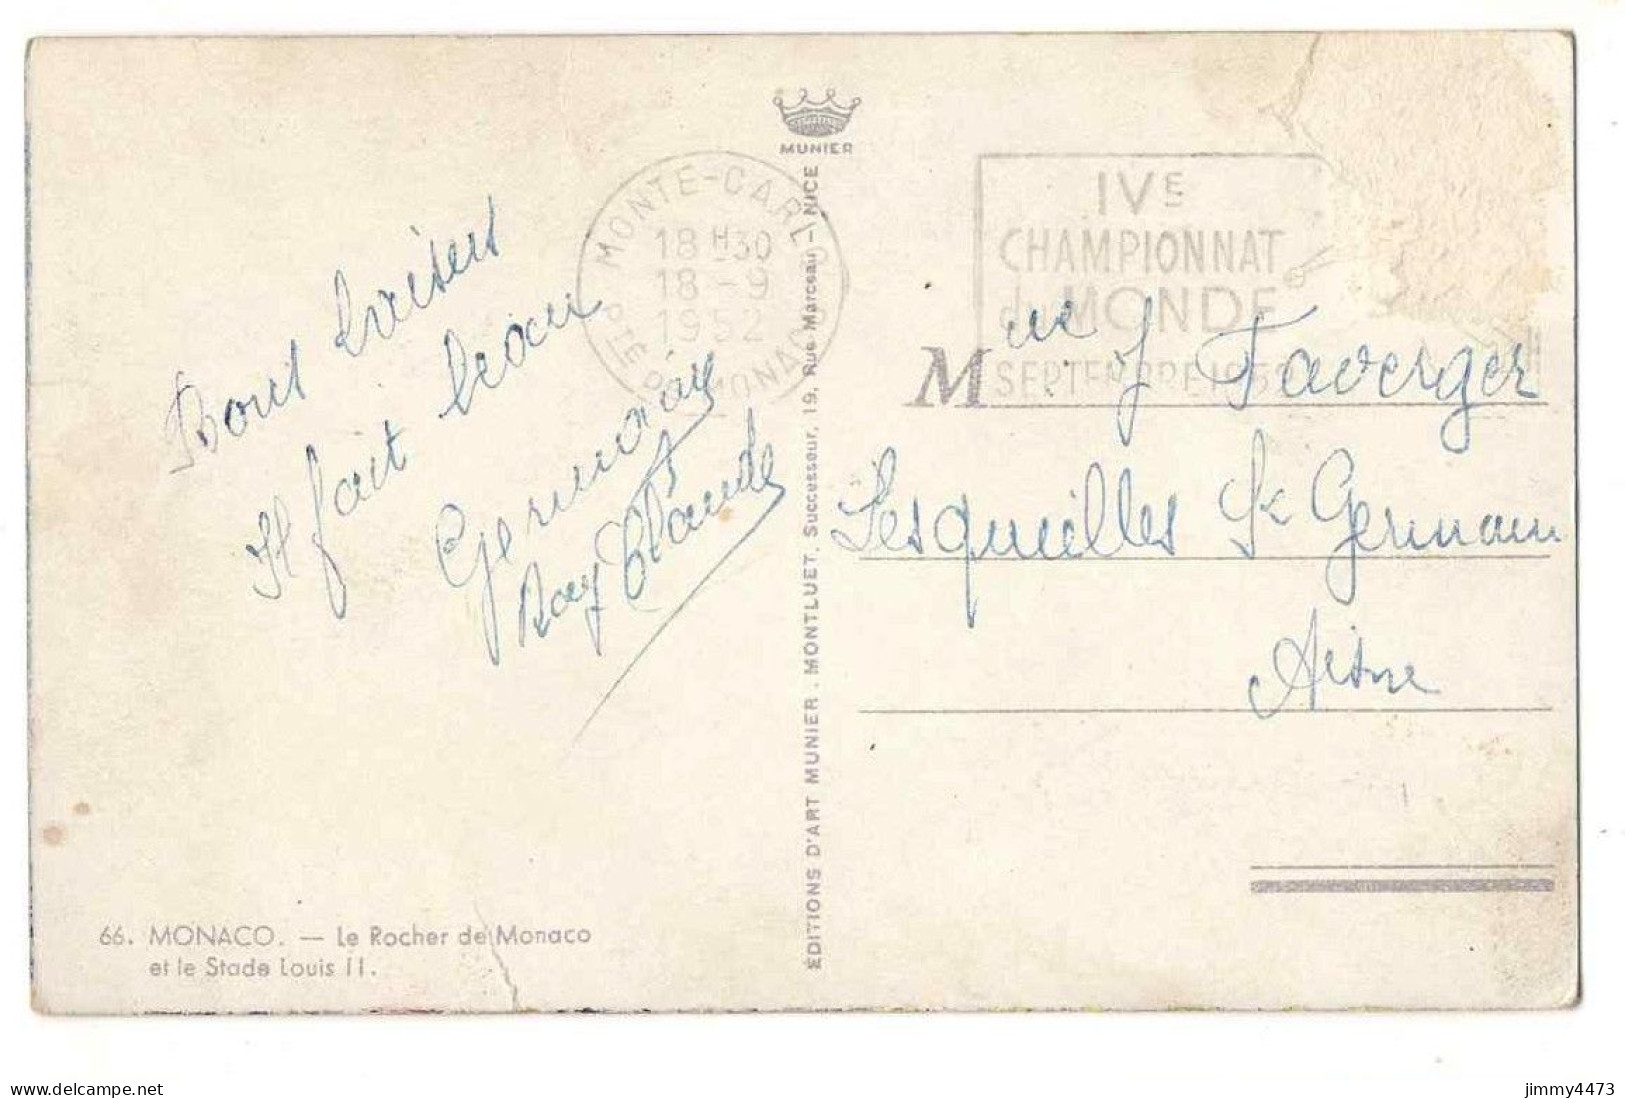 MUNIER
MONTE-CARLO
18 H 30
18 - 9
1952
PTÉ DE MONACO
IVE
CHAMPIONNAT
du MONDE
SEPTEMBRE 1952
Bons baisers
Il fait beau
Germaine
Roby Claude
Mme J Faverger
Lesquielles St Germain
Aisne
ÉDITIONS D'ART MUNIER. MONTLUET, Successeur, 19, Rue Marceau - NICE
66. MONACO. — Le Rocher de Monaco
et le Stade Louis II.
www.delcampe.net
jimmy4473